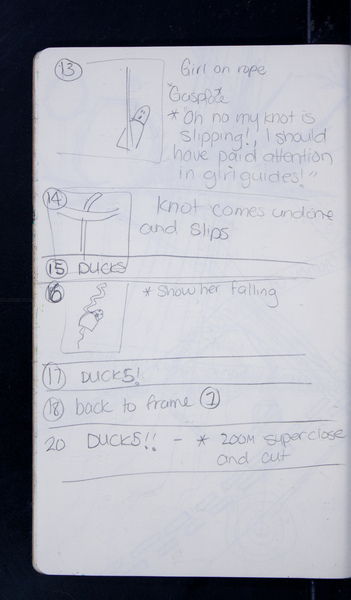 13
Girl on rope
* "Oh no my knot is
slipping!, I should
have paid attention
in girl guides!"
14
Knot comes undone
and slips
15 DUCKS
16
* Show her falling
17 DUCKS!
18 back to frame 7
20 DUCKS!! - * zoom super close
and cut